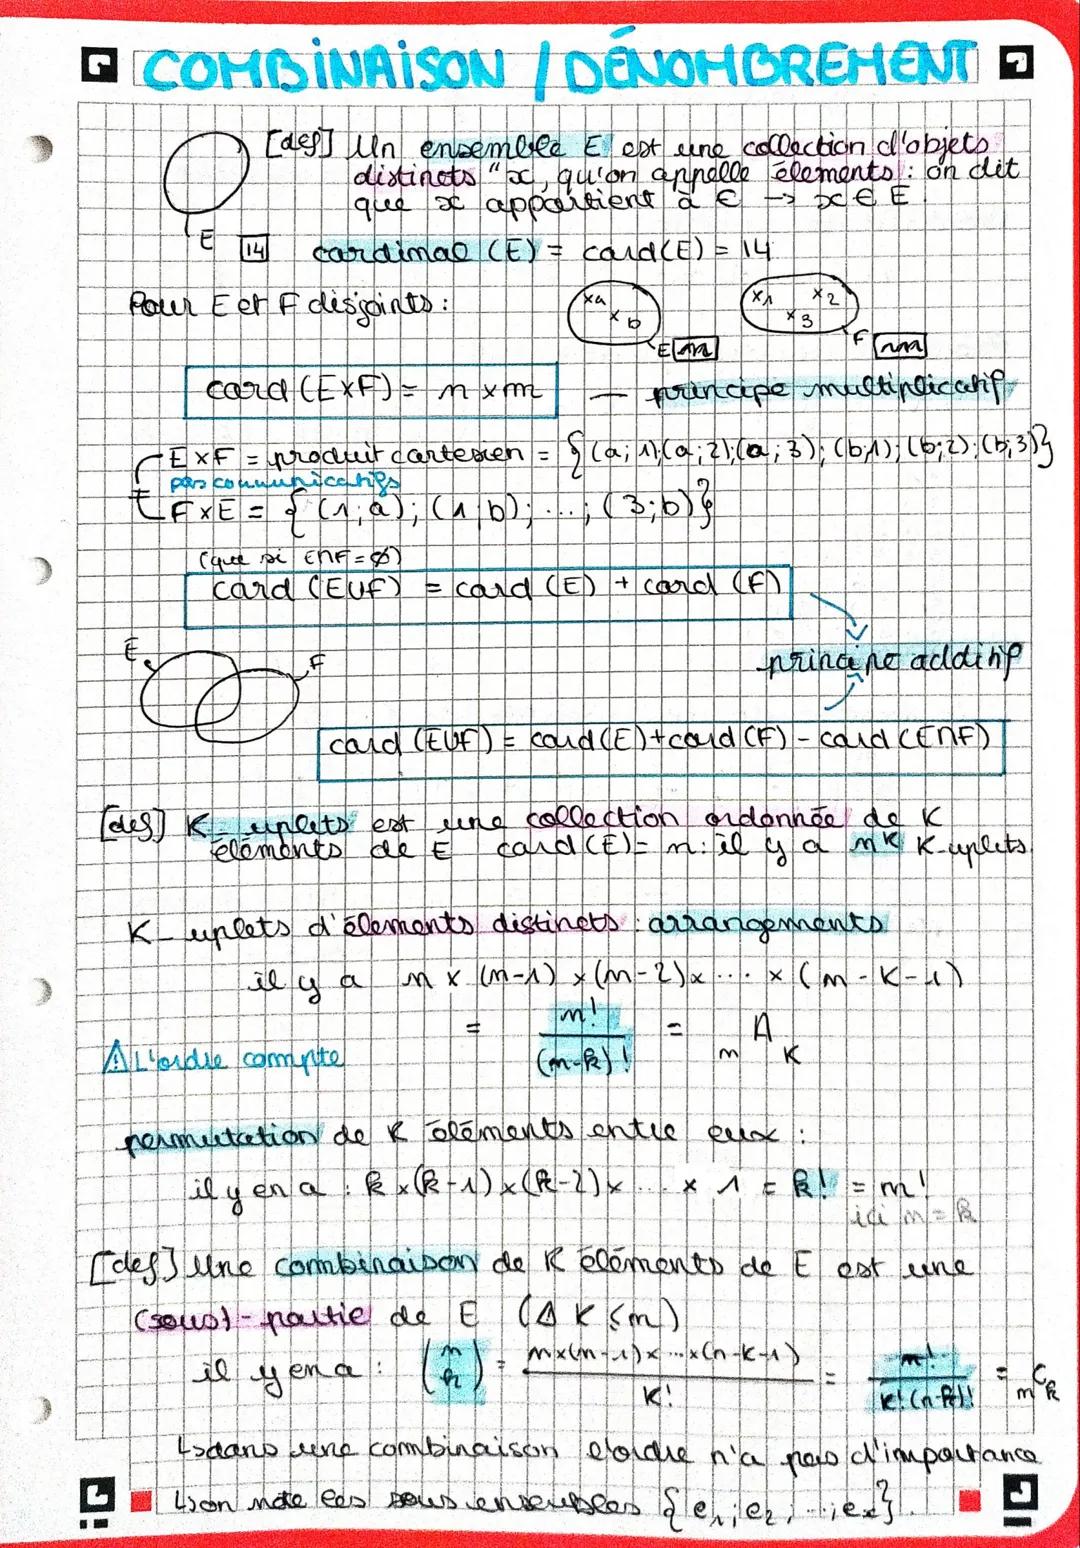 COMBINAISON / DÉNOMBREMENT
[def] Un ensemble E est une collection d'objets
distincts "x, qu'on appelle élements : on dit
que x appartient à E → x ∈ E
E 14 cardinal (E) = card(E) = 14
Pour E et F disjoints :
xa xb E n
x1 x2 x3 F m
card (E×F) = n × m — principe multiplicatif
E×F = produit cartesien = {(a;1);(a;2);(a;3);(b;1);(b;2);(b;3)}
pas communicatifs
F×E = {(1;a);(1;b);...;(3;b)}
(que si E∩F = ∅)
card (E∪F) = card (E) + card (F)
E F
principe additif
card (E∪F) = card(E)+card(F) - card(E∩F)
[def] K-uplets est une collection ordonnée de K
éléments de E card(E)= n: il y a nᴷ K-uplets
K-uplets d'élements distincts : arrangements
il y a n × (n-1) × (n-2) × ... × (n-K-1)
= n! / (n-k)! = nAK
⚠ L'ordre compte
permutation de k éléments entre eux :
il y en a : k × (k-1) × (k-2) × ... × 1 = k! = n!
ici n = k
[def] Une combinaison de K éléments de E est une
(sous)-partie de E (⚠ K ≤ n)
il y en a : (n k) = n×(n-1)×...×(n-k-1) / K! = n! / k!(n-k)! = nCk
↳ dans une combinaison l'ordre n'a pas d'importance
↳ on note les sous ensembles {e₁;e₂,...;eₓ}.